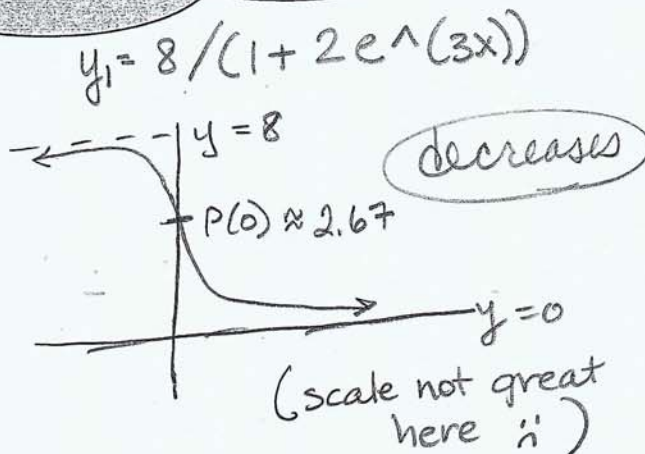 y₁ = 8/(1+2e^(3x))
y = 8
decreases
P(0) ≈ 2.67
y = 0
(scale not great
here )